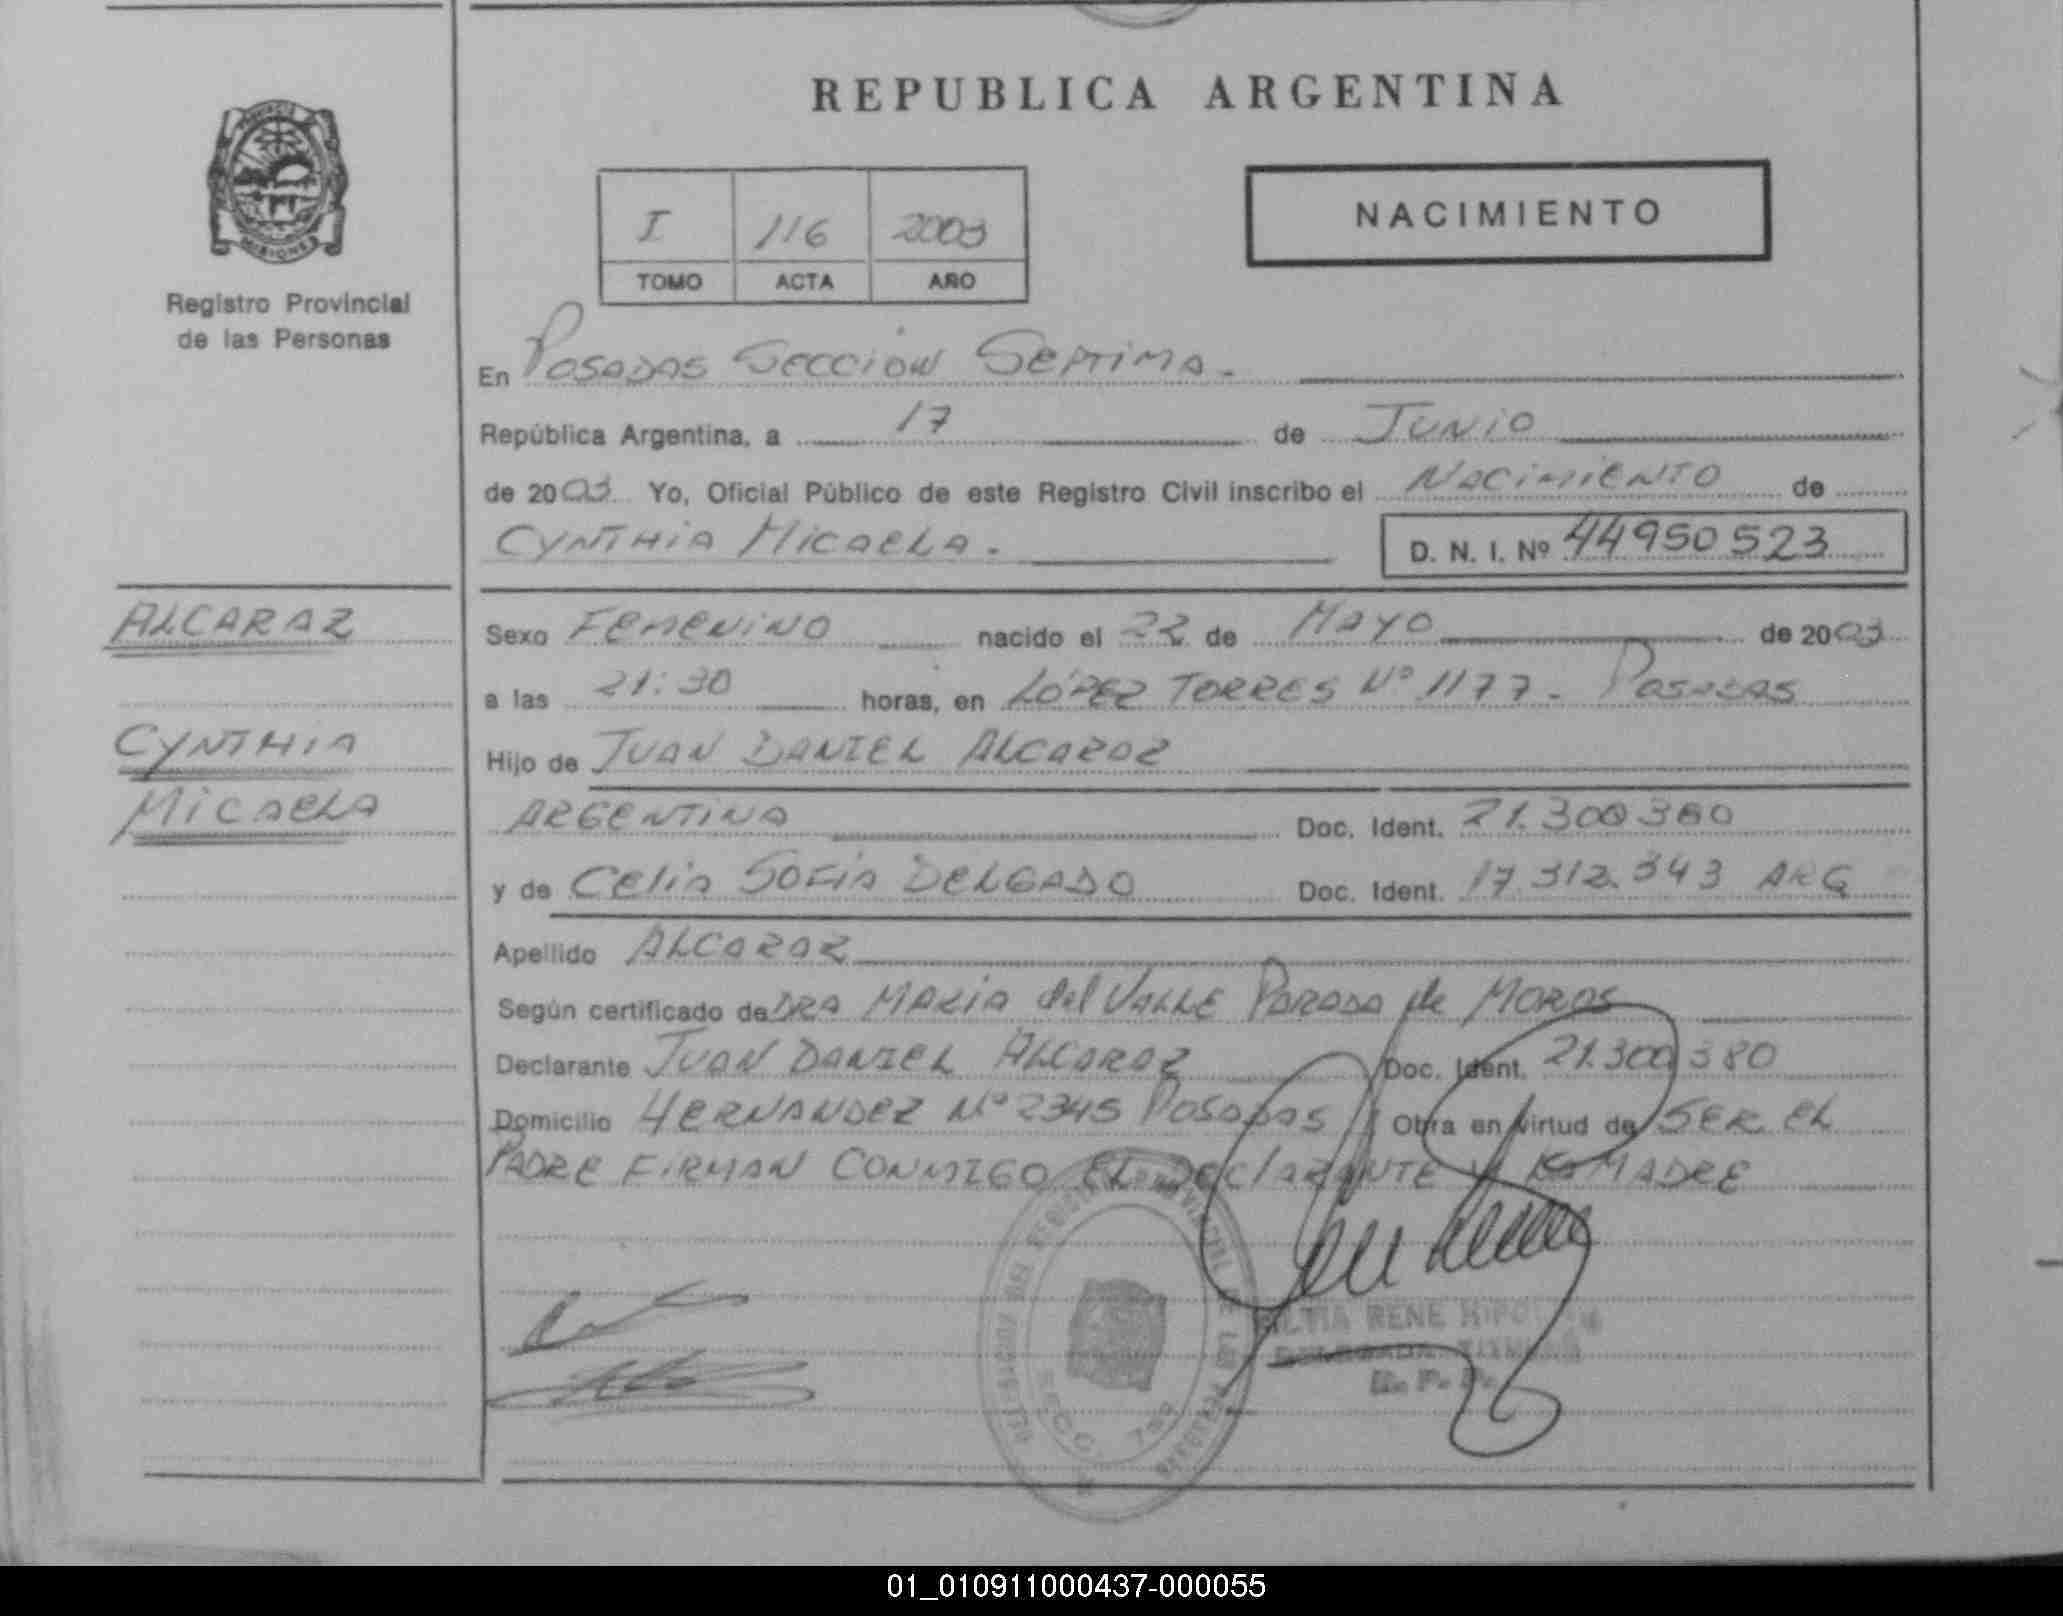 REPUBLICA ARGENTINA
PROVINCIA
MISIONES
Registro Provincial
de las Personas
I 116 2003
TOMO ACTA AÑO
NACIMIENTO
En Posadas Sección Septima.
República Argentina, a 17 de Junio
de 2003 Yo, Oficial Público de este Registro Civil inscribo el Nacimiento de
Cynthia Micaela. D. N. I. Nº 44950523
ALCARAZ
Cynthia
Micaela
Sexo Femenino nacido el 22 de Mayo de 2003
a las 21:30 horas, en López Torres Nº 1177 - Posadas
Hijo de Juan Daniel Alcaraz
Argentina Doc. Ident. 21.300380
y de Celia Sofia Delgado Doc. Ident. 17.312.343 ARG
Apellido Alcaraz
Según certificado de DRA Maria del Valle Parada de Moras
Declarante Juan Daniel Alcaraz Doc. Ident. 21.300380
Domicilio Hernandez Nº 2345 Posadas Obra en virtud de ser el
Padre firman conmigo el declarante y la madre
RENE
SECC. 7ma
01_010911000437-000055